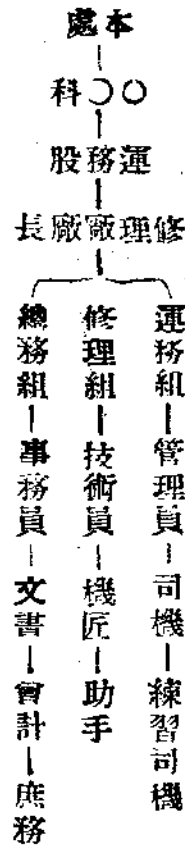 本處
○○科
運務股
修理廠廠長
運務組—管理員—司機—練習司機
修理組—技術員—機匠—助手
總務組—事務員—文書—會計—庶務